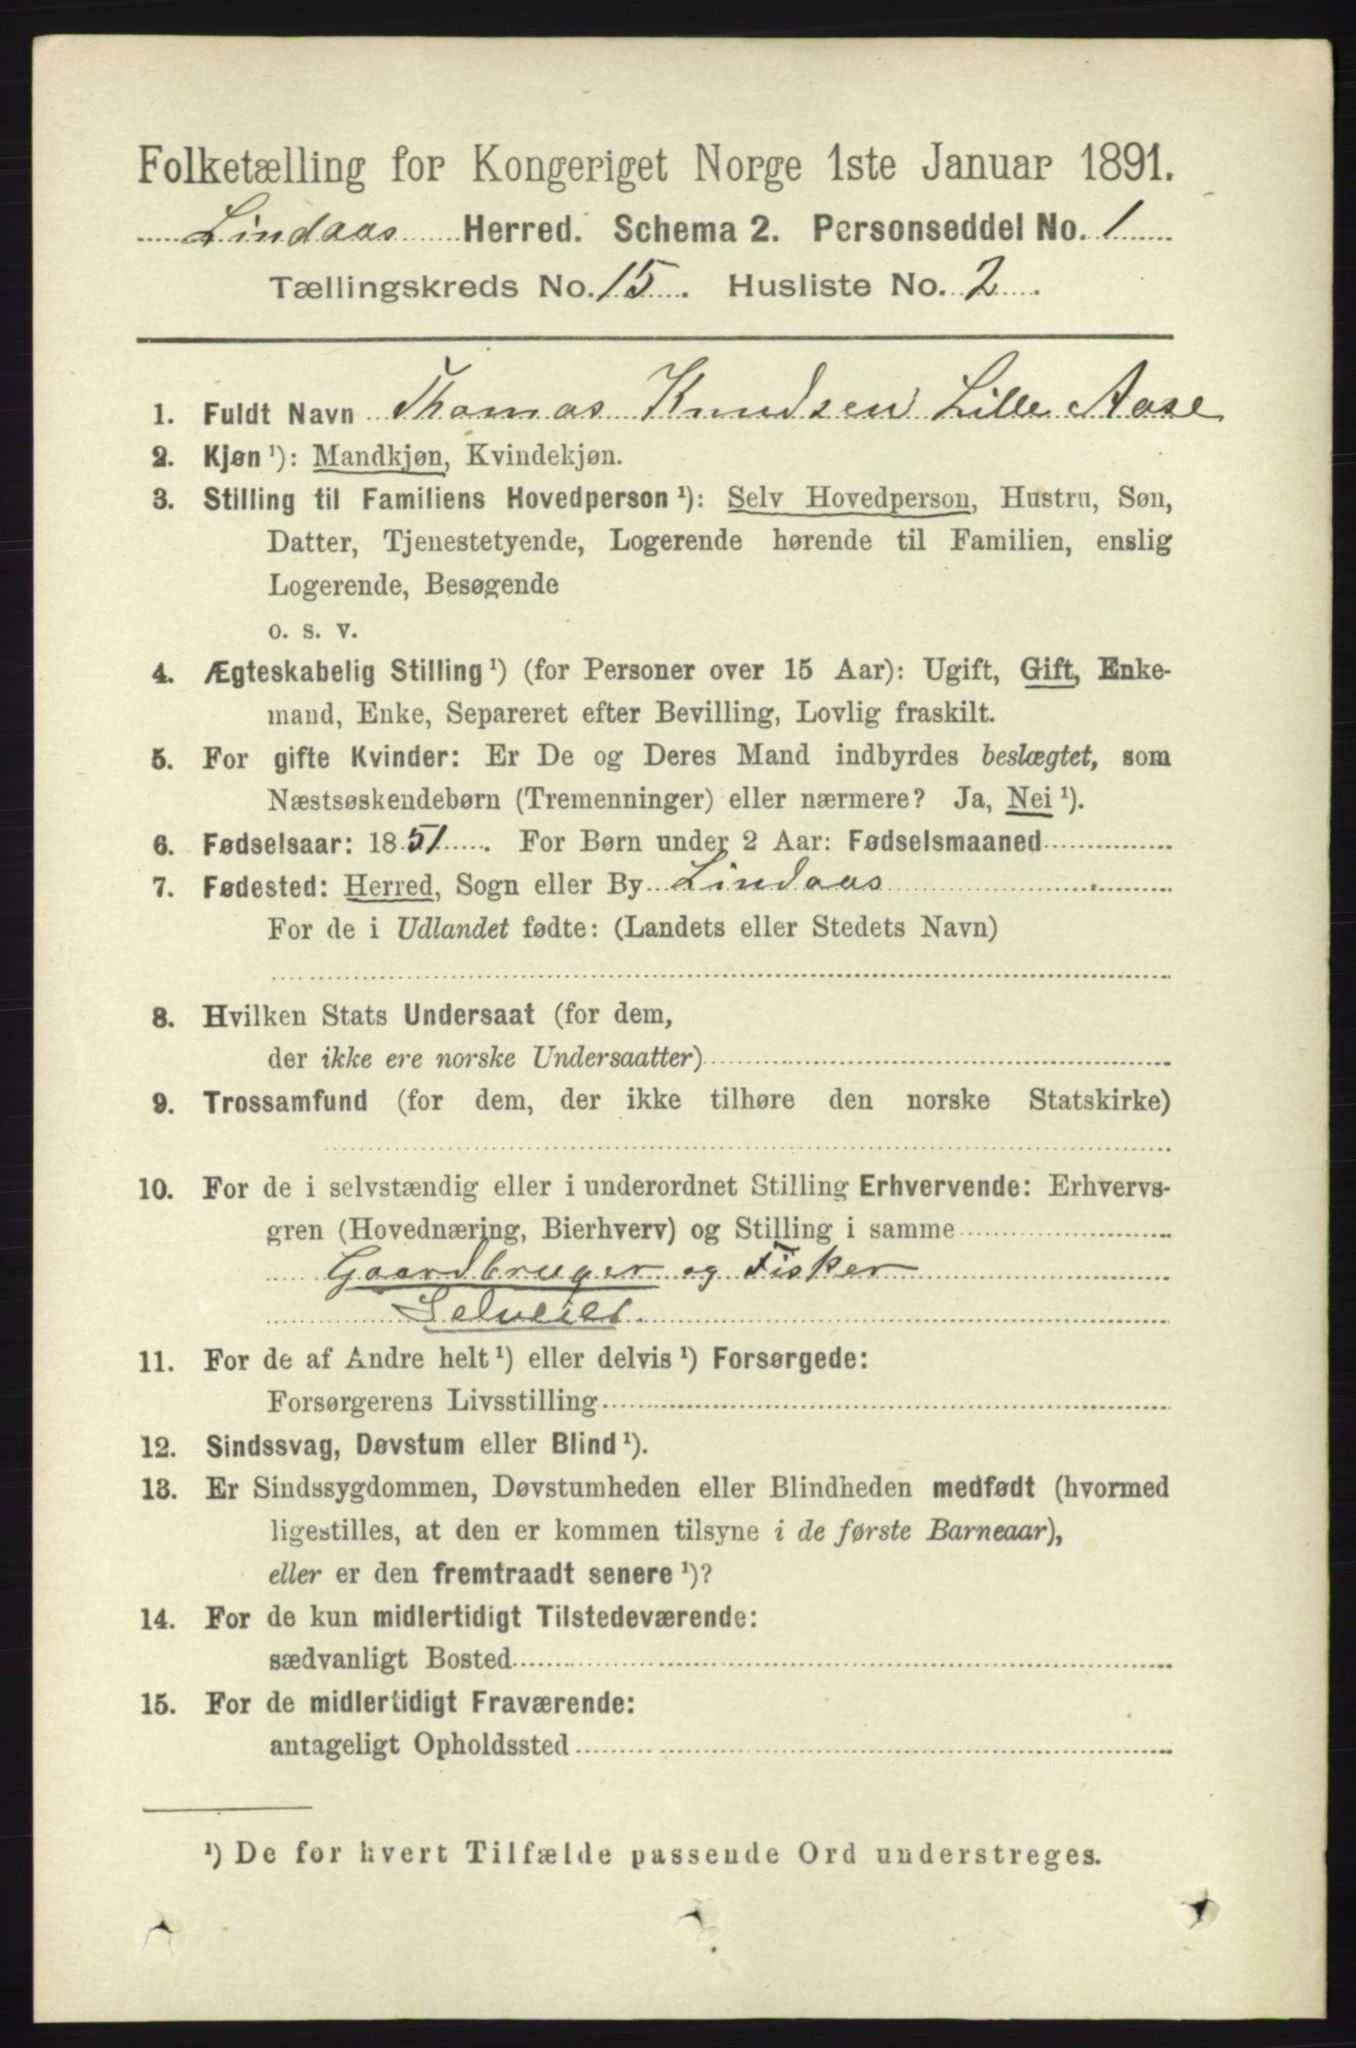 Folketælling for Kongeriget Norge 1ste Januar 1891.
Lindaas Herred. Schema 2. Personseddel No. 1
Tællingskreds No. 15. Husliste No. 2.
1. Fuldt Navn Thomas Knudsen Lille Aase
2. Kjøn¹): Mandkjøn, Kvindekjøn.
3. Stilling til Familiens Hovedperson¹): Selv Hovedperson, Hustru, Søn,
Datter, Tjenestetyende, Logerende hørende til Familien, enslig
Logerende, Besøgende
o. s. v.
4. Ægteskabelig Stilling¹) (for Personer over 15 Aar): Ugift, Gift, Enke-
mand, Enke, Separeret efter Bevilling, Lovlig fraskilt.
5. For gifte Kvinder: Er De og Deres Mand indbyrdes beslægtet, som
Næstsøskendebørn (Tremenninger) eller nærmere? Ja, Nei¹).
6. Fødselsaar: 1851. For Børn under 2 Aar: Fødselsmaaned
7. Fødested: Herred, Sogn eller By Lindaas
For de i Udlandet fødte: (Landets eller Stedets Navn)
8. Hvilken Stats Undersaat (for dem,
der ikke ere norske Undersaatter)
9. Trossamfund (for dem, der ikke tilhøre den norske Statskirke)
10. For de i selvstændig eller i underordnet Stilling Erhvervende: Erhvervs-
gren (Hovednæring, Bierhverv) og Stilling i samme
Gaardbruger og Fisker
Selveier
11. For de af Andre helt¹) eller delvis¹) Forsørgede:
Forsørgerens Livsstilling
12. Sindssvag, Døvstum eller Blind¹).
13. Er Sindssygdommen, Døvstumheden eller Blindheden medfødt (hvormed
ligestilles, at den er kommen tilsyne i de første Barneaar),
eller er den fremtraadt senere¹)?
14. For de kun midlertidigt Tilstedeværende:
sædvanligt Bosted
15. For de midlertidigt Fraværende:
antageligt Opholdssted
¹) De for hvert Tilfælde passende Ord understreges.